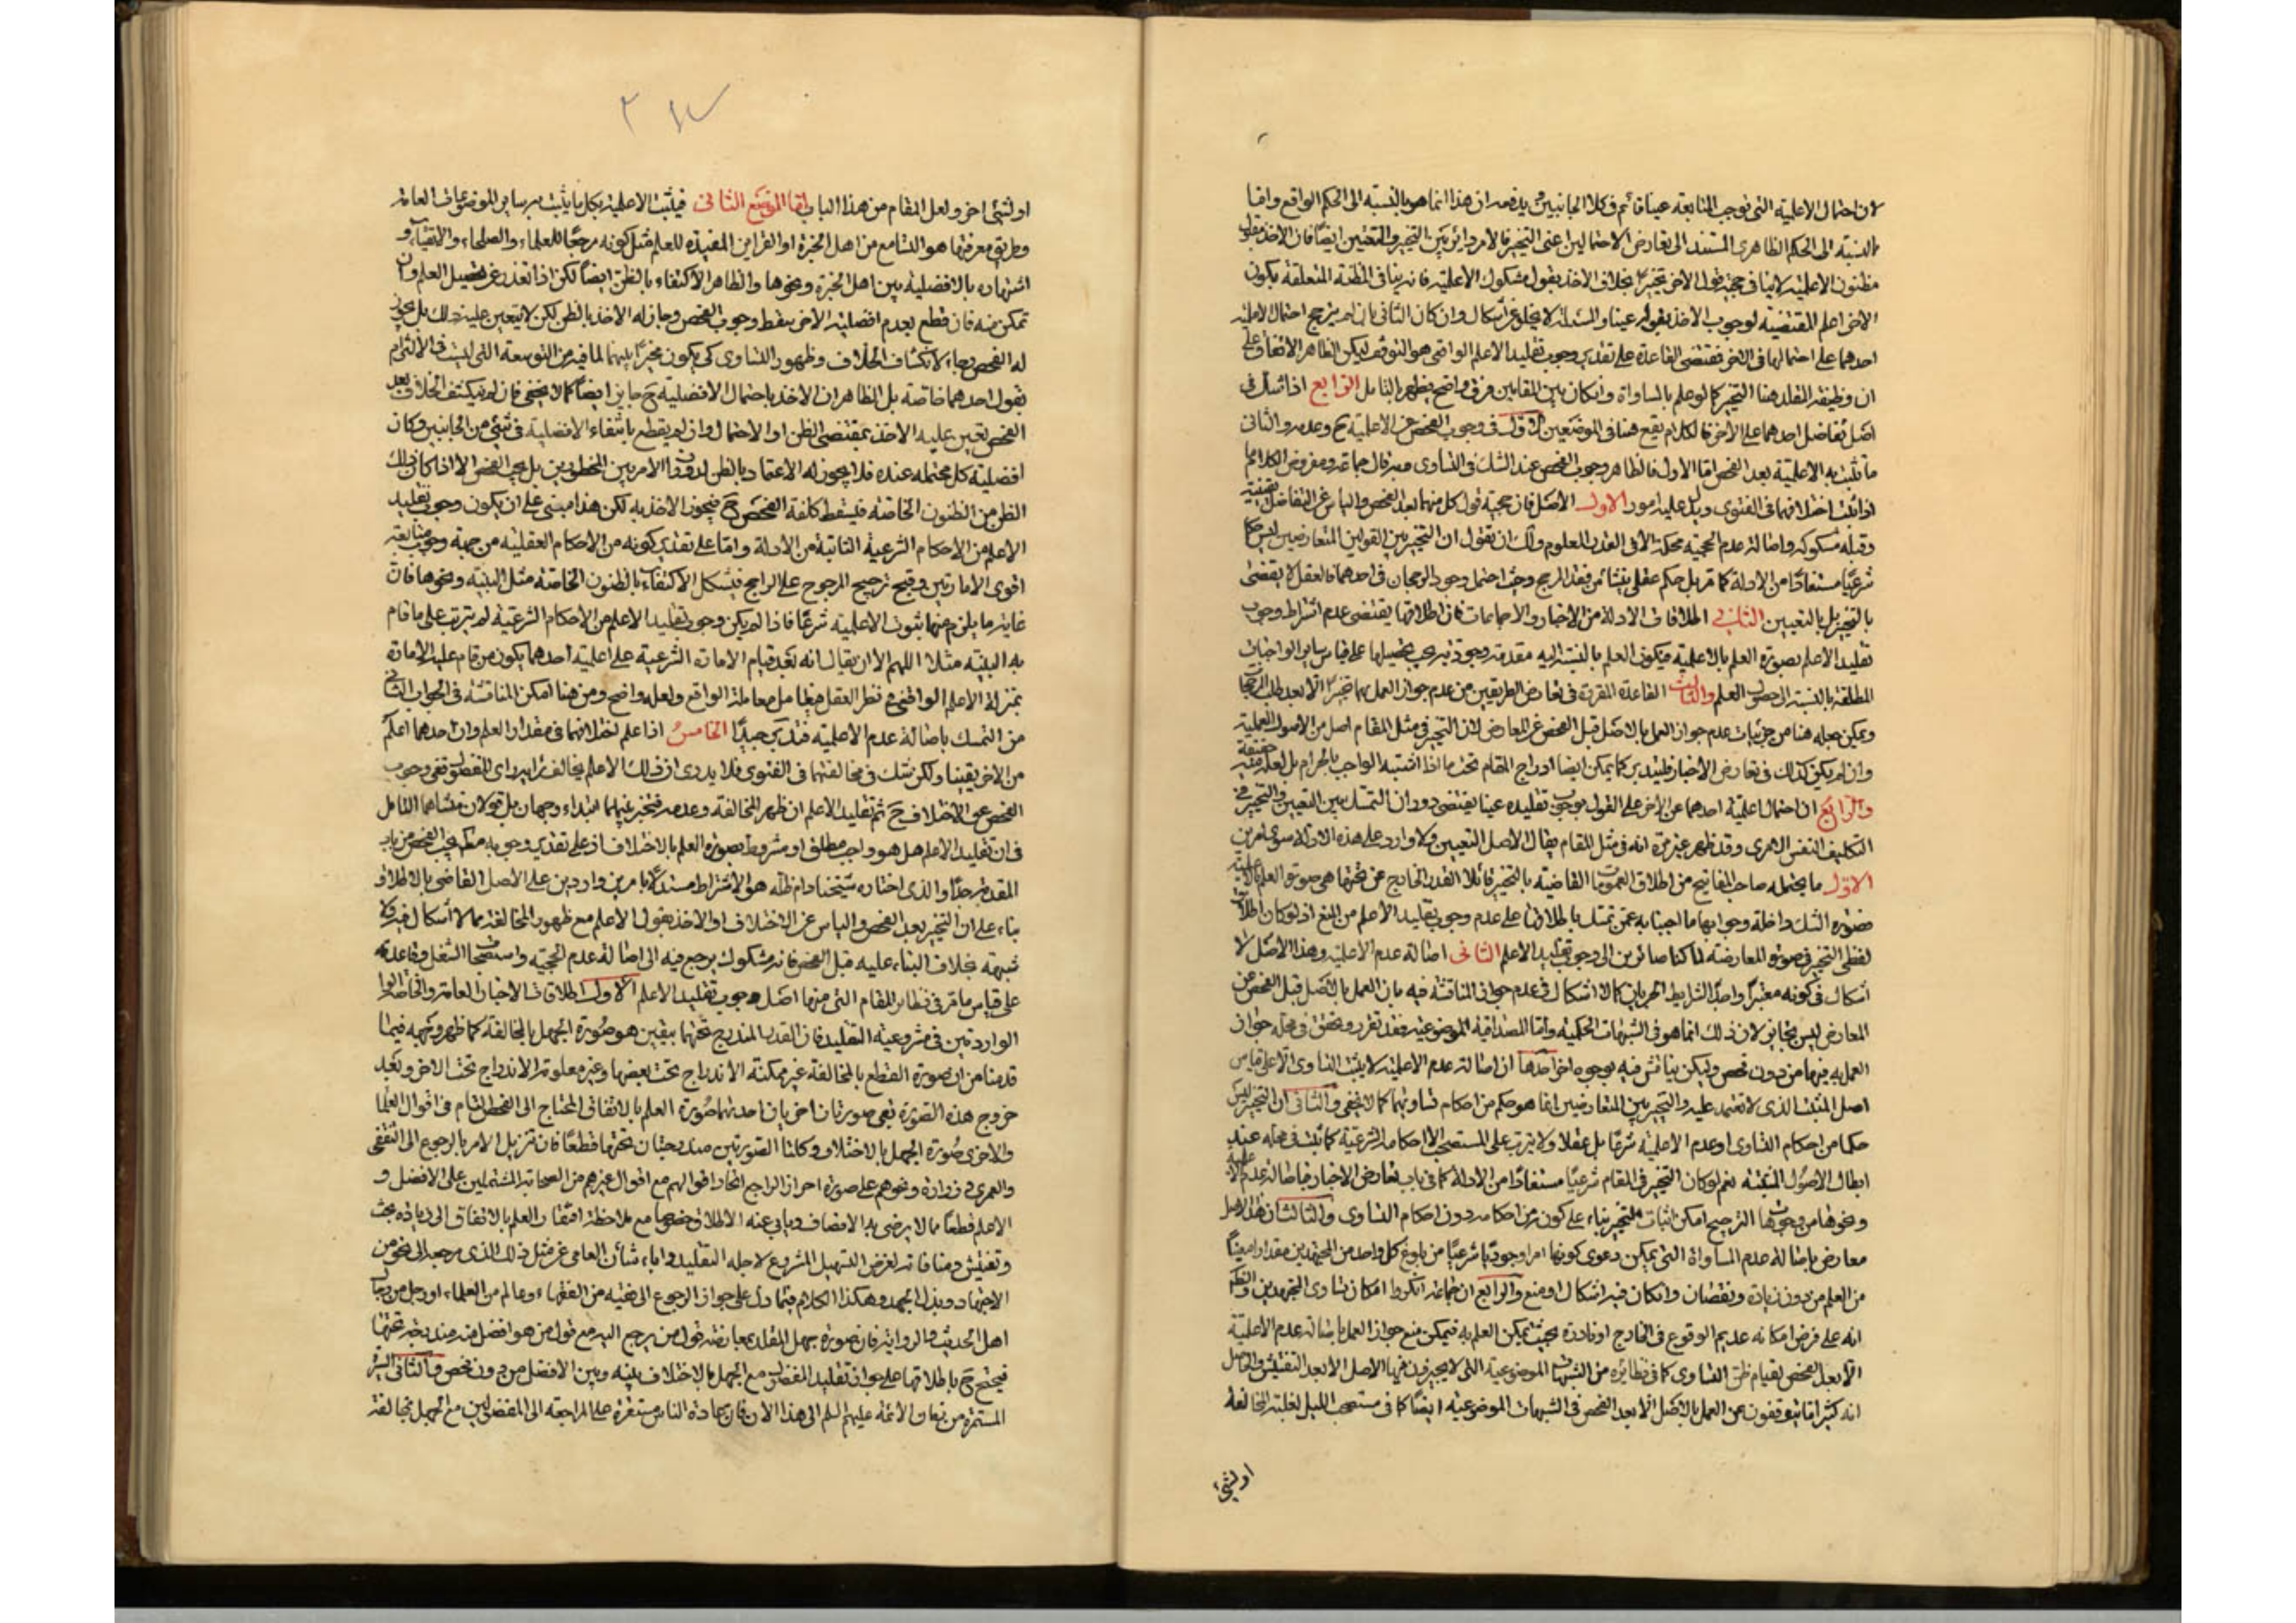 لان احتمال الاعلمية التى توجب المتابعة عينا قائم فى كلا الجانبين ويدفعه ان هذا انما هو بالنسبة الى الحكم الواقع واما
بالنسبة الى الحكم الظاهرى المستند الى تعارض الاحتمالين اعنى التخيير فالامر دائر بين التخيير والتعيين ايضا فان الاخذ بقول
مظنون الاعلمية لا ينافى حجية قول الاخر تخييرا بخلاف الاخذ بقول مشكوك الاعلمية فانه ينافى المظنة المتعلقة بكون
الاخر اعلم المقتضية لوجوب الاخذ بقوله عينا والمسئلة لا يخلو عن اشكال وان كان الثانى بان لم يترجح احتمال الاعلمية
احدهما على احتمالها فى الاخر فمقتضى القاعدة على تقدير وجوب تقليد الاعلم الواقعى هو التوقف ليكن الظاهر الاتفاق على
ان وظيفة المقلد هنا التخيير كما لو علم بالمساواة وان كان بين المقامين فرق واضح يظهر بالتامل الرابع اذا شك فى
اصل تفاضل احدهما على الاخر فالكلام يقع هنا فى الموضعين الاول فى وجوب الفحص عن الاعلمية ح وعدمه والثانى
ما يثبت به الاعلمية بعد الفحص اما الاول فالظاهر وجوب الفحص عند الشك فى التساوى وبه قال جماعة ومفروض الكلام ما
اذا ثبت اختلافهما فى الفتوى ويدل عليه امور الاول الاصل فان حجية قول كل منهما بعد الفحص والياس عن التفاضل يقينية
وقبله مشكوكه واصالة عدم الحجية محكمة الا فى القدر المعلوم ولك ان تقول ان التخيير بين القولين المتعارضين ليس حكما
شرعيا مستفادا من الادلة كما مر بل حكم عقلى ينشأ من فقد المرجح وحيث احتمل وجود الرجحان فى احدهما فالعقل لا يقضى
بالتخيير بل بالتعيين الثانى اطلاقات الادلة من الاخبار والاجماعات فان اطلاقها يقتضى عدم اشتراط وجوب
تقليد الاعلم بصورة العلم بالاعلمية فيكون العلم بالنسبة اليه مقدمة وجودية يجب تحصيلها على قياس ساير الواجبات
المطلقة بالنسبة الى حصول العلم والثالث القاعدة المقررة فى تعارض الطريقين من عدم جواز العمل بهما تخييرا الا بعد طلب الترجيح
ويمكن جعله هنا من جزئيات عدم جواز العمل بالاصل قبل الفحص عن المعارض لان التخيير فى مثل المقام اصل من الاصول العملية
وان لم يكن كذلك فى تعارض الاخبار كما يمكن ايضا ادراج المقام تحت ما اذا اشتبه الواجب بالحرام بل لعله منه حقيقة
والرابع ان احتمال اعلمية احدهما عن الاخر على القول بوجوب تقليده عينا يقتضى دوران التمسك بين التعيين والتخيير فى
التكليف النفس الامرى وقد ظهر غير مرة انه فى مثل المقام يقال الاصل التعيين ولا وارد على هذه الادلة سوى امرين
الاول ما يحتمله صاحب المفاتيح من اطلاق العمومات القاضية بالتخيير قائلا القدر الخارج عن تحتها هى صورة العلم بالاعلمية
فصورة الشك داخلة وجوابها ما اجبنا به عمن تمسك باطلاقها على عدم وجوب تقليد الاعلم من المنع اذ لو كان اطلاقات
لفظى التخيير فى صورة المعارضة لما كنا صائرين الى وجوب تقليد الاعلم الثانى اصالة عدم الاعلمية وهذا الاصل لا
اشكال فى كونه معتبرا واجدا لشرايط الجريان كما لا اشكال فى عدم جواز المناقشة فيه بان العمل بالاصل قبل الفحص عن
المعارض ليس بجايز لان ذلك انما هو فى الشبهات الحكمية واما المصداقية الموضوعية فقد تقرر وتحقق فى محله جواز
العمل به فيها من دون فحص وليكن يناقش فيه بوجوه اخر احدها ان اصالة عدم الاعلمية لا يثبت التساوى الا على قياس
اصل المثبت الذى لا نعتمد عليه والتخيير بين المتعارضين انما هو حكم من احكام تساويهما كما لا يخفى والثانى ان التخيير ليس
حكما من احكام التساوى او عدم الاعلمية شرعا بل عقلا ولا يترتب على المستصحب الا احكامه الشرعية كما يثبت فى محله عند
ابطال الاصول المثبتة نعم لو كان التخيير فى المقام شرعيا مستفادا من الادلة كما فى باب تعارض الاخبار فاصالة عدم الاعلمية
ونحوها من وجوه الترجيح امكن اثبات التخيير بناء على كونه من احكامه دون احكام التساوى والثالث ان هذا الاصل
معارض باصالة عدم المساواة التى يمكن دعوى كونها امرا وجوديا شرعيا من بلوغ كل واحد من المجتهدين مقدارا معينا
من العلم من دون زيادة ونقصان وان كان فيه اشكال او منع والرابع ان جماعة انكروا امكان تساوى المجتهدين
انه على فرض امكانه عديم الوقوع فى الخارج او نادرة بحيث يمكن العلم به فيمكن منع جواز العمل باصالة عدم الاعلمية
الا بعد الفحص لقيام ظن التساوى كما فى نظائره من الشبهات الموضوعية التى لا يجيزون فيها الاصل الا بعد التفتيش
انه كثيرا ما يتوقفون عن العمل بالاصل الا بعد الفحص فى الشبهات الموضوعية ايضا كما فى مستصحب الليل لغلبة المخالفة
او لشئ
او لشئ اخر ولعل المقام من هذا الباب اما الموضع الثانى فيثبت الاعلمية بكل ما يثبت به ساير الموضوعات العامة
وطريق معرفتها هو التسامع من اهل الخبرة او القراين المفيدة للعلم مثل كونه مرجعا للعلماء والصلحاء والاتقياء و
اشتهاره بالافضلية بين اهل الخبرة ونحوها والظاهر الاكتفاء بالظن ايضا لكن اذا تعذر عن تحصيل العلم وان
تمكن منه فان قطع بعدم افضلية الاخر سقط وجوب الفحص وجاز له الاخذ بالظن لكن لا يتعين عليه ذلك بل يجوز
له الفحص رجاء لانكشاف الخلاف وظهور التساوى كى يكون مخيرا بينهما لما فيه من التوسعة التى ليست فى الالتزام
بقول احدهما خاصة بل الظاهر ان الاخذ باحتمال الافضلية ح جايز ايضا كما لا يخفى فان لم ينكشف الخلاف بعد
الفحص تعين عليه الاخذ بمقتضى الظن او الاحتمال وان لم يقطع بانتفاء الافضلية فى شئ من الجانبين وكان
افضلية كل محتملة عنده فلا يجوز له الاعتماد بالظن لدوران الامر بين المحظورين بل يجب الفحص الا اذا كان ذلك
الظن من الظنون الخاصة فيسقط كلفة الفحص ح فيجوز الاخذ به لكن هذا مبنى على ان يكون وجوب تقليد
الاعلم من الاحكام الشرعية الثابتة من الادلة واما على تقدير كونه من الاحكام العقلية من جهة وجوب متابعة
اقوى الامارتين وقبح ترجيح المرجوح على الراجح فيشكل الاكتفاء بالظنون الخاصة مثل البينة ونحوها فان
غاية ما يلزم منها ثبوت الاعلمية شرعا فاذا لم يكن وجوب تقليد الاعلم من الاحكام الشرعية لم يترتب على ما قام
به البينة مثلا اللهم الا ان يقال انه بعد قيام الامارة الشرعية على اعلمية احدهما يكون من قام عليه الامارة
بمنزلة الاعلم الواقعى فى نظر العقل فيعامل معاملة الواقع ولعله واضح ومن هنا امكن المناقشة فى الجواب الثانى
من التمسك باصالة عدم الاعلمية فتدبر جيدا الخامس اذا علم اختلافهما فى مقدار العلم وان احدهما اعلم
من الاخر يقينا ولكن شك فى مخالفتهما فى الفتوى فلا يدرى ان ذلك الاعلم يخالف رايه راى المفضول ففى وجوب
الفحص عن الاختلاف ح ثم تقليد الاعلم ان ظهر المخالفة وعدمه فيتخير بينهما ابتداء وجهان بل قولان منشاهما التامل
فى ان تقليد الاعلم هل هو واجب مطلق او مشروط بصورة العلم بالاختلاف اذ على تقدير وجوبه مطلقا يجب الفحص من باب
المقدمة جدا والذى اختاره شيخنا دام ظله هو الاشتراط مستندا بامرين واردين على الاصل القاضى بالاطلاق
بناء على ان التخيير بعد الفحص والياس عن الاختلاف او الاخذ بقول الاعلم مع ظهور المخالفة مما لا اشكال فيه ولا
شبهة بخلاف البناء عليه قبل الفحص فانه مشكوك يرجع فيه الى اصالة عدم الحجية واستصحاب الشغل وقاعدته
على قياس ما مر فى نظاير المقام التى منها اصل وجوب تقليد الاعلم الاول اطلاقات الاخبار العامة والخاصة
الواردتين فى مشروعية التقليد فان القدر المندرج تحتها بيقين هو صورة الجهل بالمخالفة كما ظهر وجهه فيما
قدمنا من ان صورة القطع بالمخالفة غير ممكنة الاندراج تحت بعضها وغير معلومة الاندراج تحت الاخر وبعد
خروج هذه الصورة بقى صورتان اخريان احدتهما صورة العلم بالاتفاق المحتاج الى الفحص التام فى اقوال العلماء
والاخرى صورة الجهل بالاختلاف وكلتا الصورتين مندرجتان تحتها قطعا فان تنزيل الامر بالرجوع الى الثقفى
والعمرى وزرارة ونحوهم على صورة احراز الراجع اتحاد اقوالهم مع اقوال غيرهم من الصحابة المشتملين على الافضل و
الاعلم قطعا مما لا يرضى به الانصاف ويابى عنه الاطلاق خصوصا مع ملاحظة افتقار العلم بالاتفاق الى زيادة بحث
وتفتيش ومنافاته لغرض التسهيل المشروع لاجله التقليد واباء شأن العامى عن مثل ذلك الذى مرجعه الى نحو من
الاجتهاد وبذل الجهد وهكذا الكلام فيما دل على جواز الرجوع الى فقيه من الفقهاء وعالم من العلماء او رجل من رجال
اهل الحديث والرواية فان صورة جهل المقلد بمعارضة قول من يرجع اليه مع قول من هو افضل منه مندرجة تحتها
فيحتج ح باطلاقها على جواز تقليد المفضول مع الجهل بالاختلاف بينه وبين الافضل من دون فحص والثانى السيرة
المستمرة من زمان الائمة عليهم السلم الى هذا الان فان عادة الناس مستقرة على المراجعة الى المفضولين مع الجهل بمخالفة